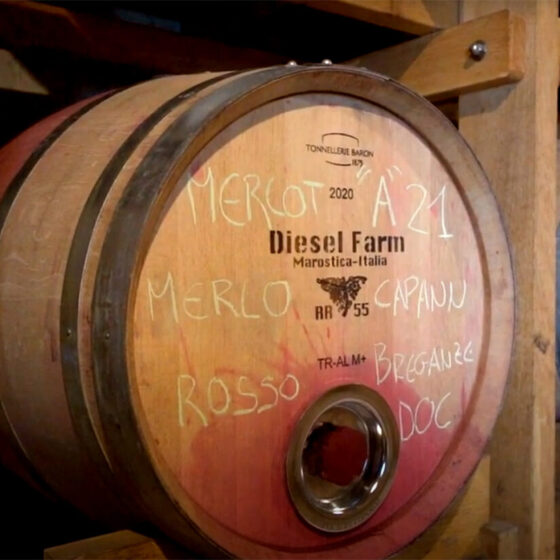 TONNELLERIE BARON
1875
MERCOT 2020 "A" 21
Diesel Farm
Marostica-Italia
MERLO RR 55 CAPANN
TR-AL M+
ROSSO BREGANZE
DOC